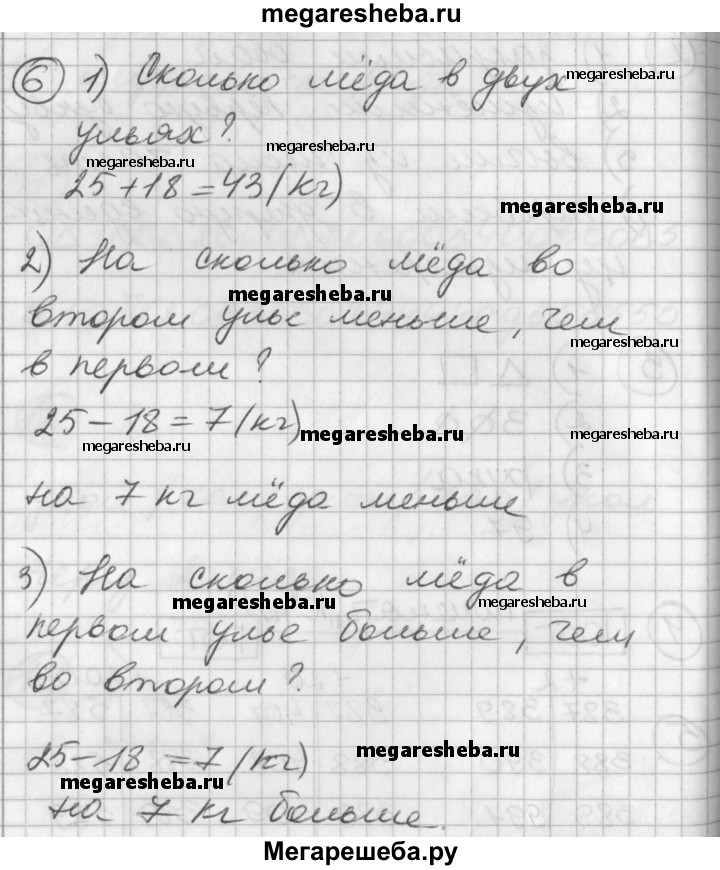 megaresheba.ru
6 1) Сколько мёда в двух
megaresheba.ru
ульях?
megaresheba.ru
megaresheba.ru
25+18=43(кг)
megaresheba.ru
2) На сколько мёда во
megaresheba.ru
втором улье меньше, чем
megaresheba.ru
в первом?
25-18=7(кг)
megaresheba.ru
megaresheba.ru
megaresheba.ru
на 7 кг мёда меньше
3) На сколько мёда в
megaresheba.ru
megaresheba.ru
первом улье больше, чем
во втором?
25-18=7(кг)
megaresheba.ru
megaresheba.ru
на 7 кг больше.
Мегарешеба.ру